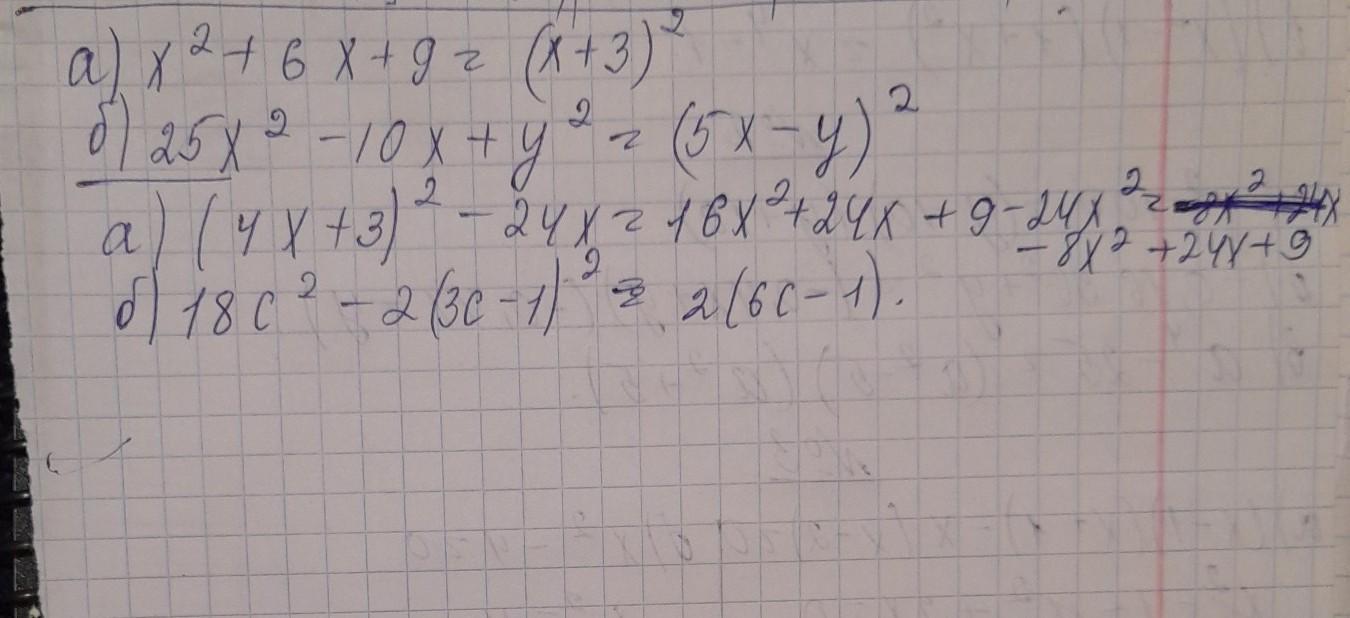 а) x² + 6x + 9 = (x+3)²
б) 25x² - 10x + y² = (5x - y)²
а) (4x+3)² - 24x = 16x² + 24x + 9 - 24x² =
- 8x² + 24x + 9
б) 18c² - 2(3c - 1)² = 2(6c - 1).